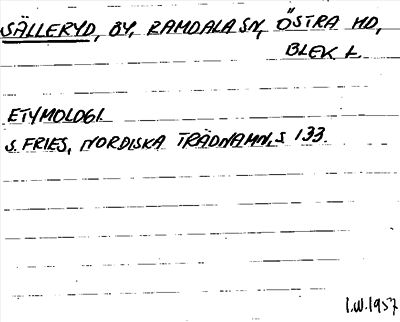 SÄLLERYD, BY, RAMDALA SN, ÖSTRA HD,
BLEK. L.
ETYMOLOGI.
S. FRIES, NORDISKA TRÄDNAMN, S 133.
I.W. 1957